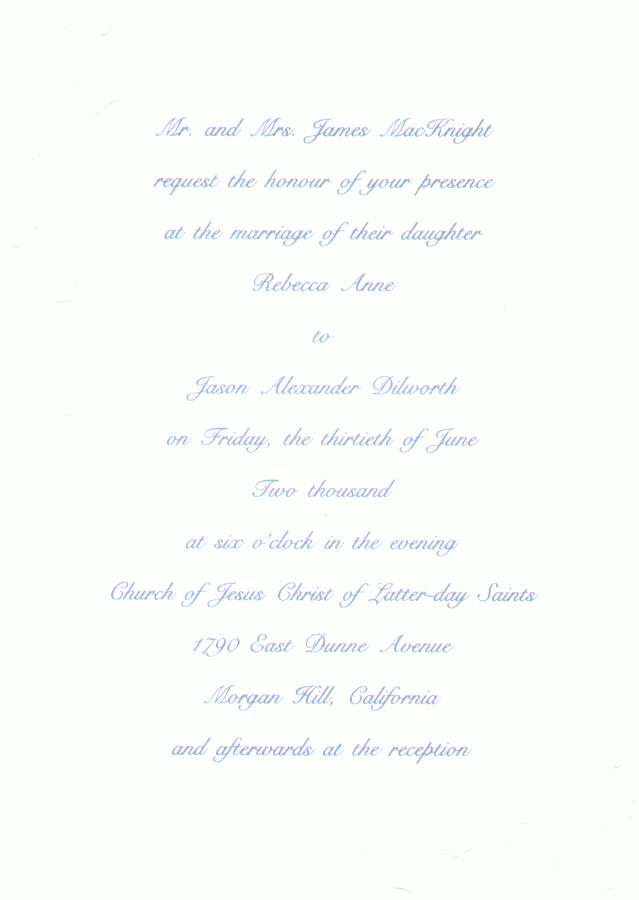 Mr. and Mrs. James MacKnight
request the honour of your presence
at the marriage of their daughter
Rebecca Anne
to
Jason Alexander Dilworth
on Friday, the thirtieth of June
Two thousand
at six o'clock in the evening
Church of Jesus Christ of Latter-day Saints
1790 East Dunne Avenue
Morgan Hill, California
and afterwards at the reception